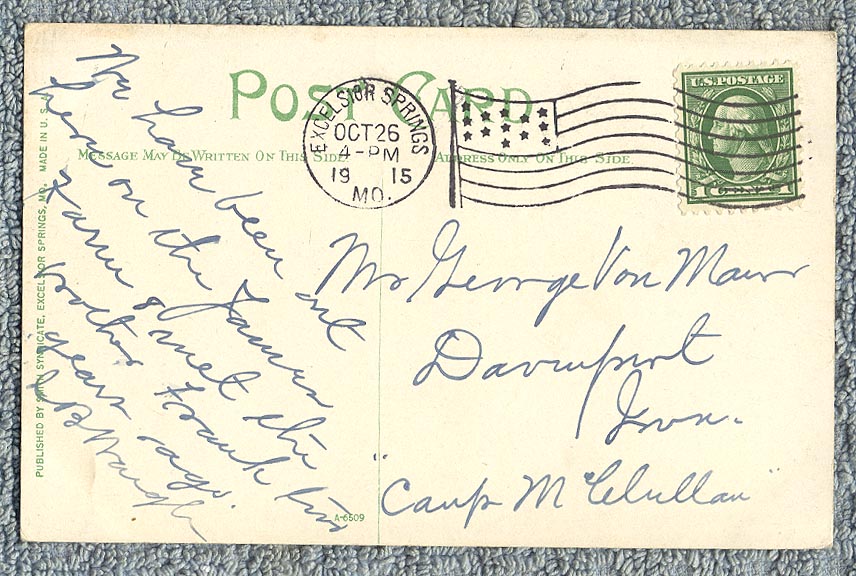 POST CARD
MESSAGE MAY BE WRITTEN ON THIS SIDE
ADDRESS ONLY ON THIS SIDE.
EXCELSIOR SPRINGS
OCT 26
4-PM
19 15
MO.
U.S. POSTAGE
1 CENT 1
We have been out
here on the James
Farm & met the
brother Frank two
years ago.
Mr George Von Maur
Davenport
Iowa.
"Camp McClellan"
PUBLISHED BY SMITH SYNDICATE, EXCELSIOR SPRINGS, MO. MADE IN U.S.A.
A-6509